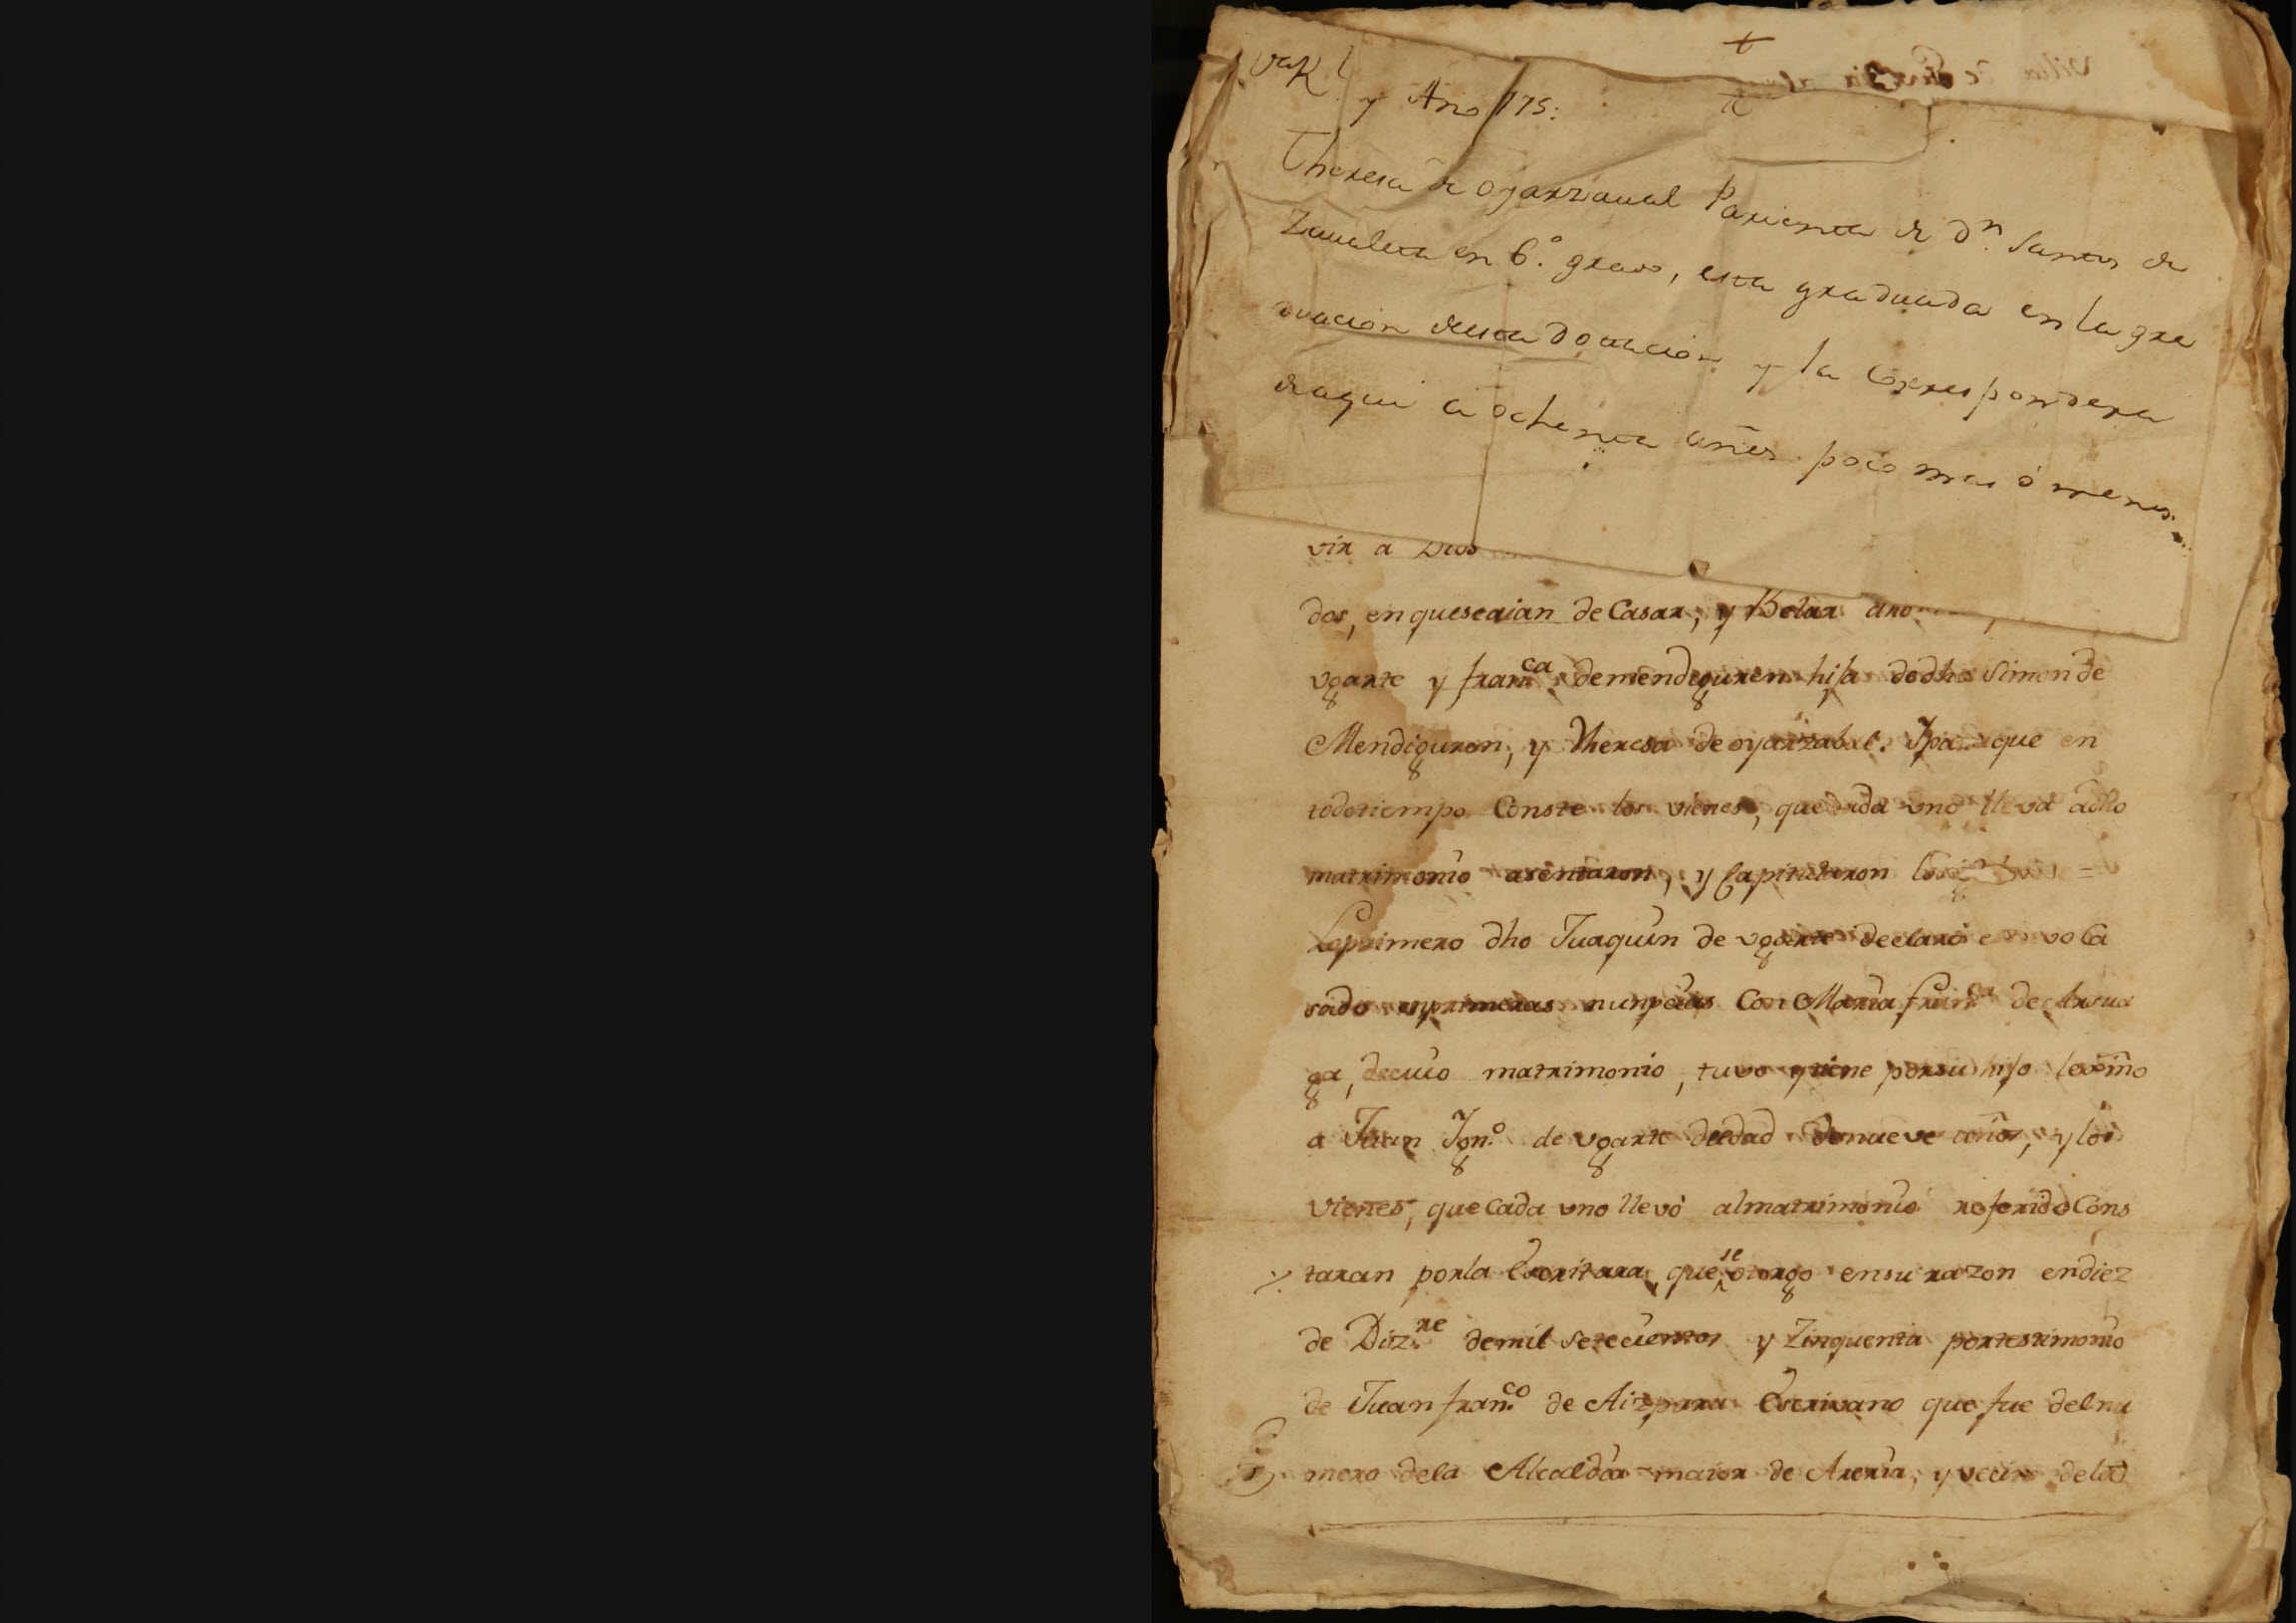 y Año 175:
Theresa de oyarzaual Parienta de Dn. Santos de
Zaualeta en 6.º grado, esta graduada en la gra
duacion desta Dotacion y la Correspondera
de aqui a ochenta años poco mas ó menos.
vir a Dios
dos, en que seaian de Casar, y Velar
vgarte y fran.ca de mendiguren hija de dho Simon de
Mendiguren, y Theresa de oyarzabal. Ypara que en
todo tiempo Conste los vienes, que cada uno lleva a dho
matrimonio asentaron, y Capitularon =
Lo primero dho Juaquin de vgarte declaró Ca
sado en primeras nunpcias Con Maria fran.ca de Arsua
ga, de cuio matrimonio, tuvo y tiene por su hijo lexmo
a Juan Ygn.º de vgarte de edad de nueve años, y los
Vienes, que Cada uno llevó al matrimonio referido Cons
taran por la Escritura, que se otorgo en su razon en diez
de Diz.re de mil setecientos y Zinquenta por testimonio
de Juan fran.co de Aizpuru Escrivano que fue del nu
mero de la Alcaldia maior de Areria, y vecino de la